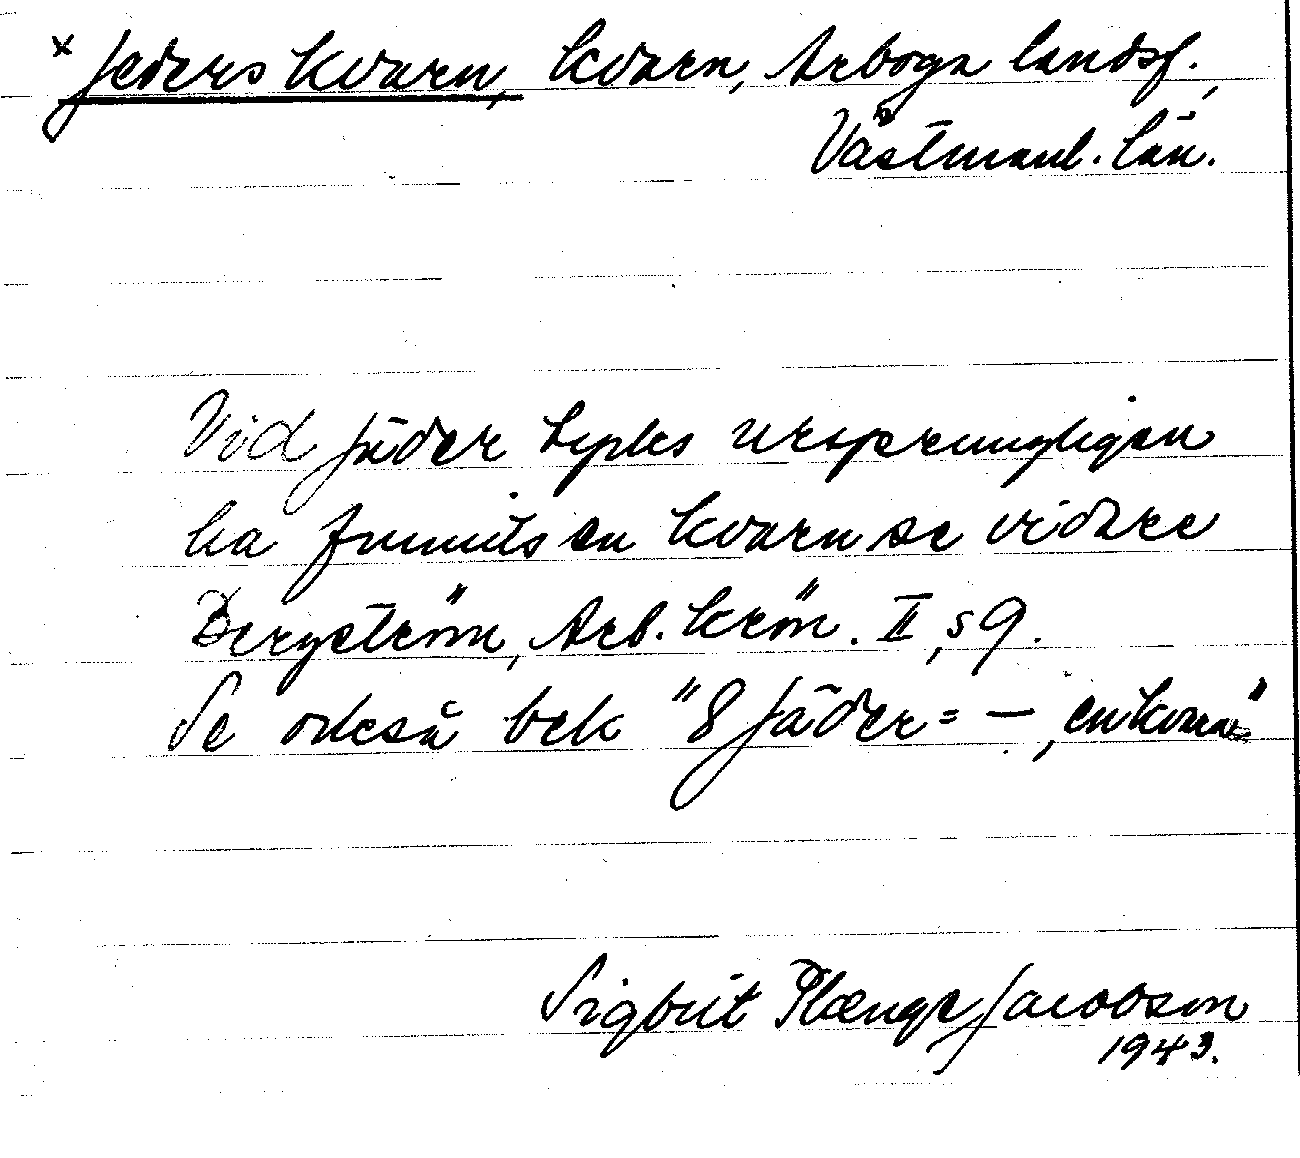 × Jeders kvarn, kvarn, Arboga landsf.,
Västmanl. län.
Vid Jäder tycks ursprungligen
ha funnits en kvarn se vidare
Bergström, Arb. krön. II, s 9.
Se också bek "8 Jäder = —, en kvarn"
Sigbrit Plænge Jacobson
1943.